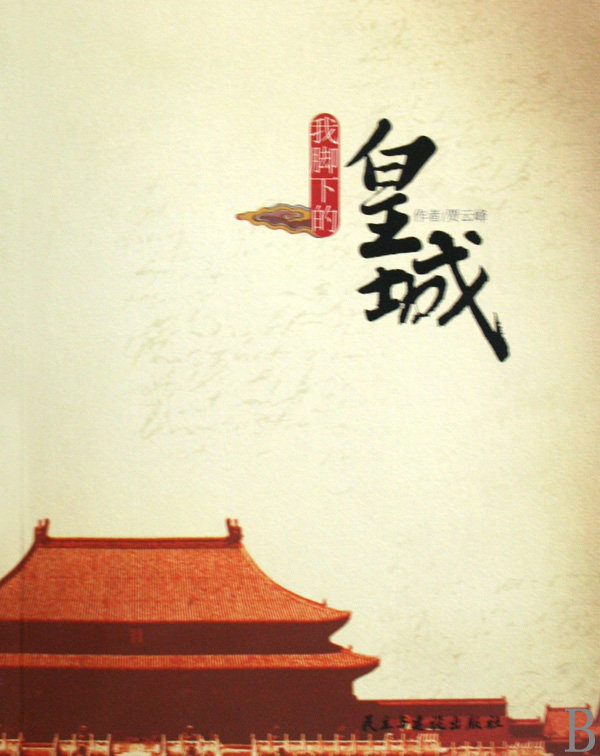 我脚下的
皇城
作者/贾云峰
民主与建设出版社
B